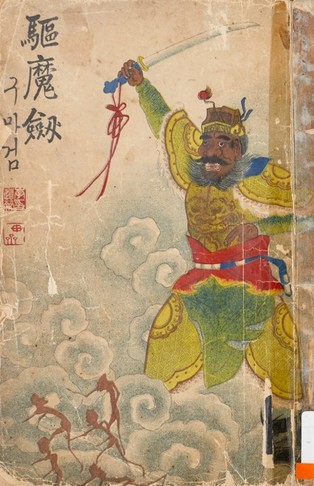 驅魔劔
구마검